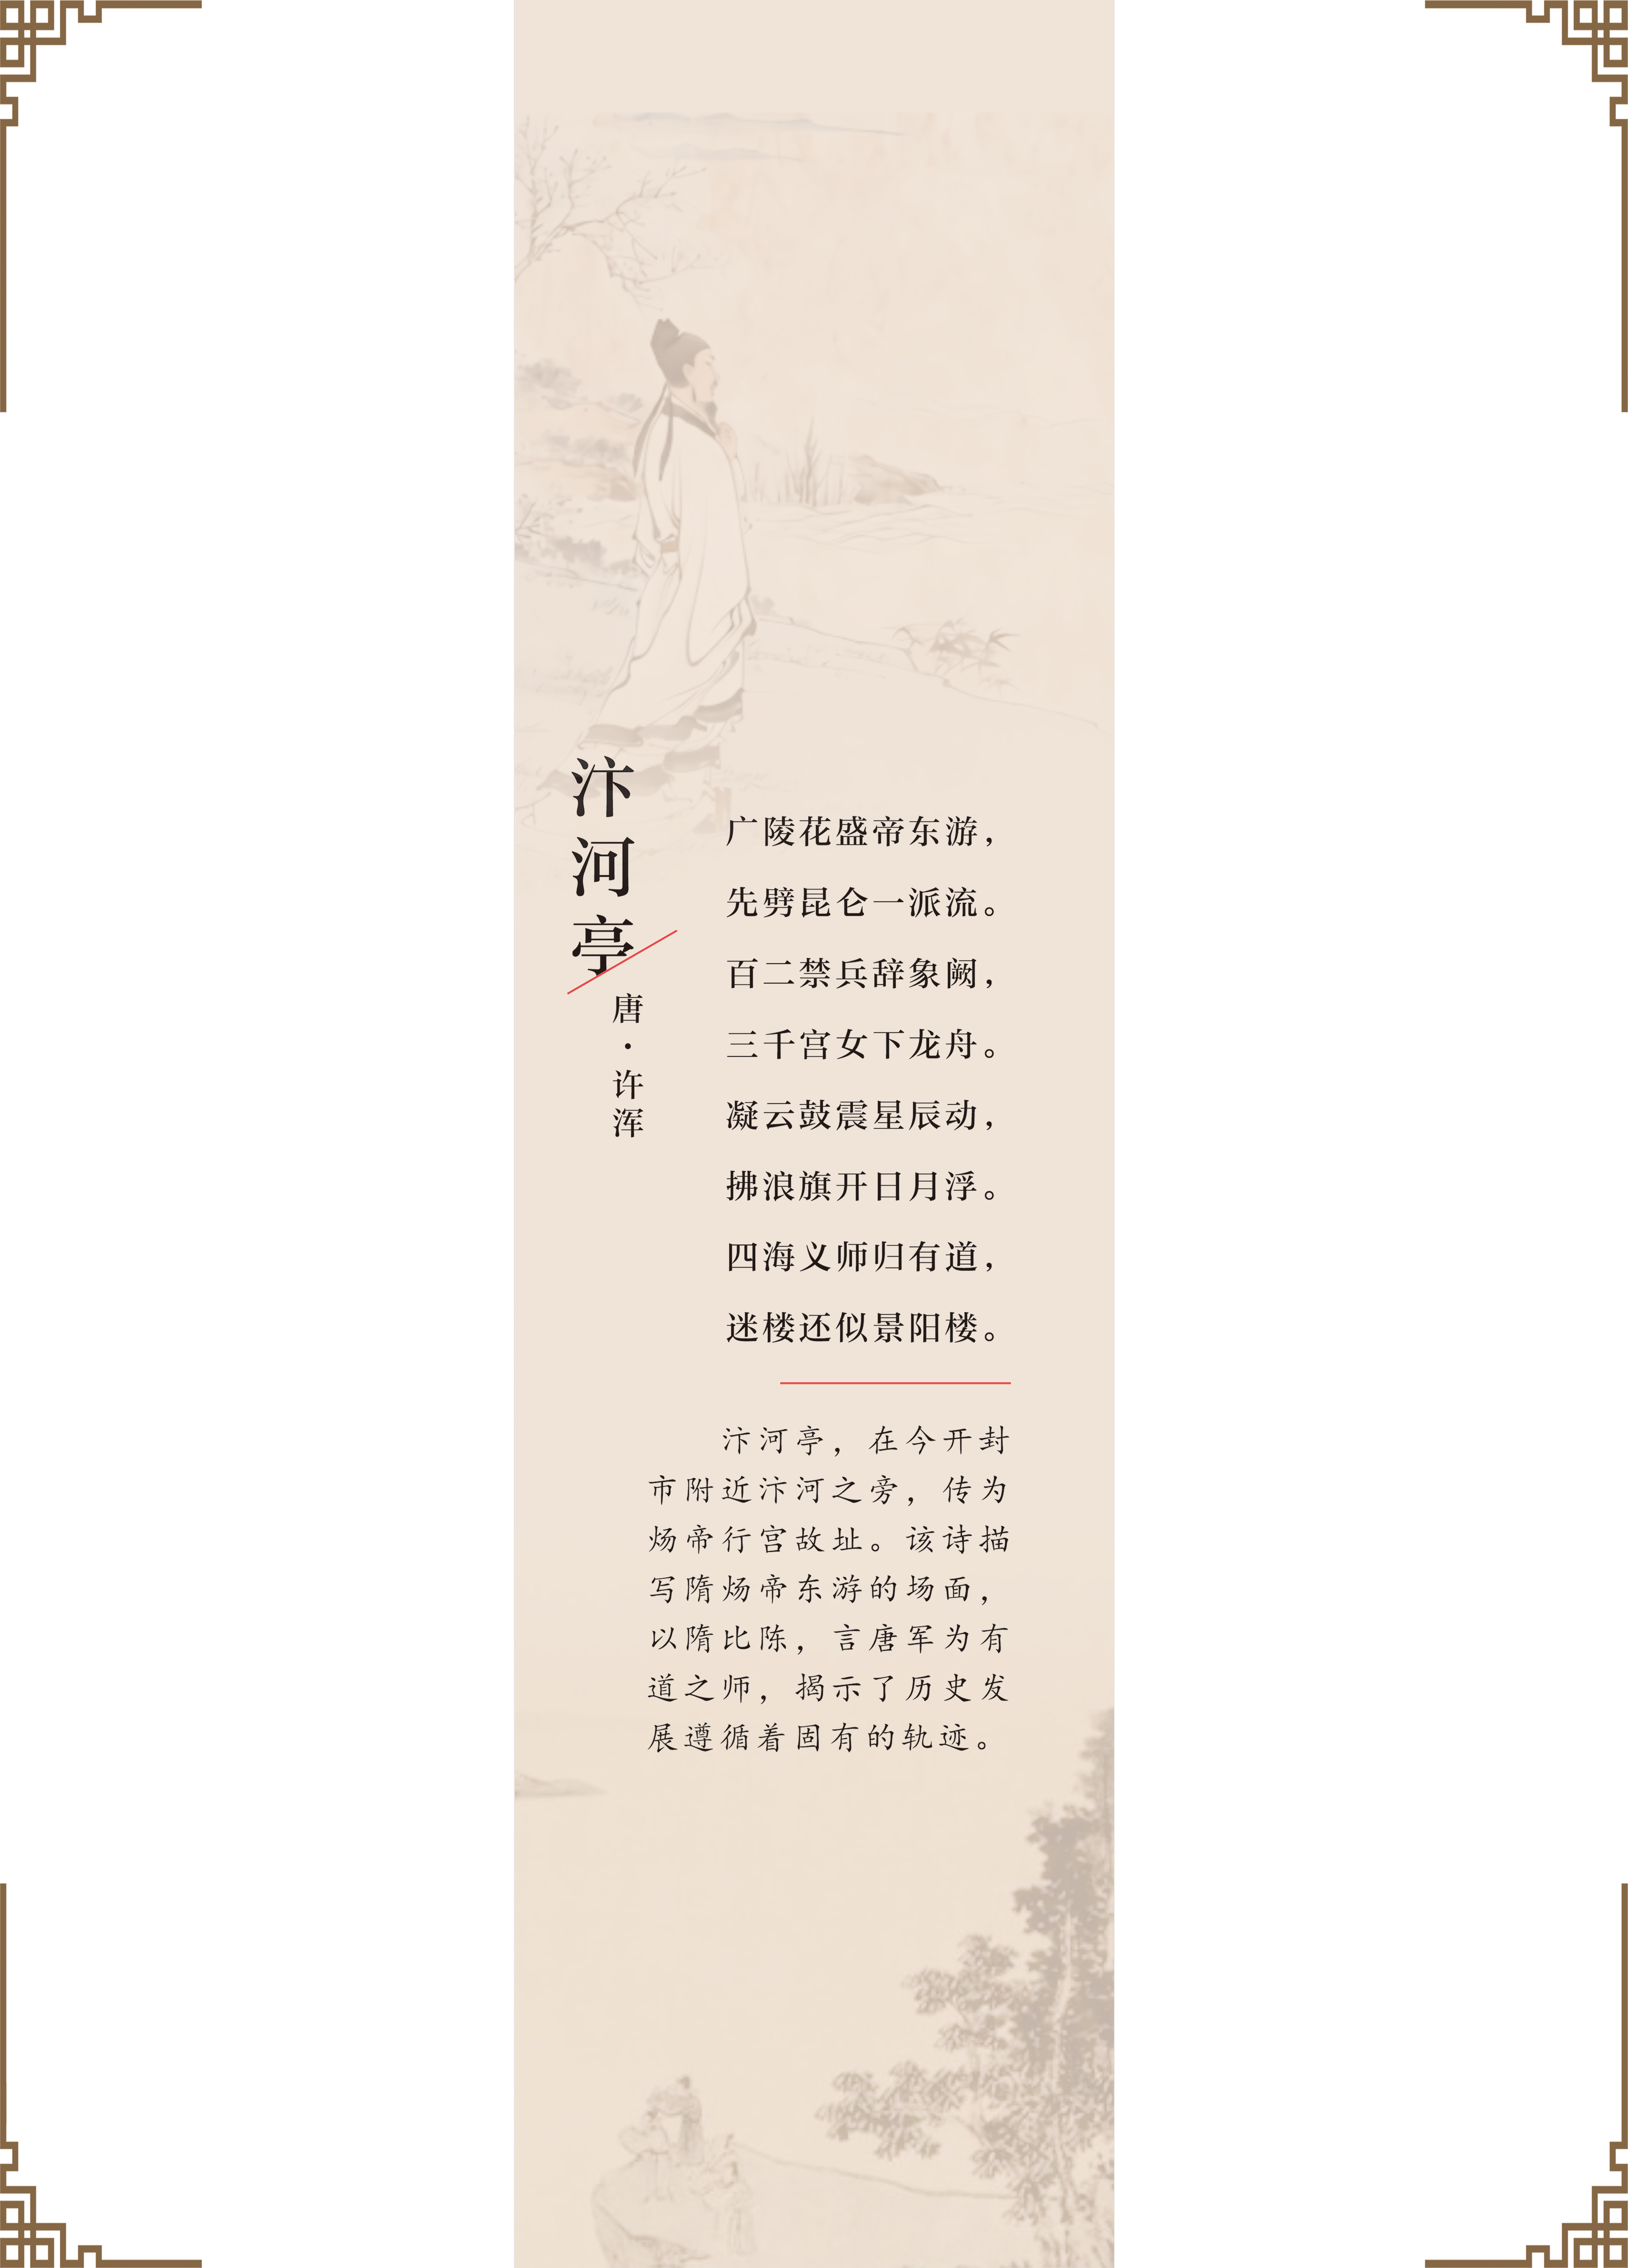 汴河亭
唐·许浑
广陵花盛帝东游，
先劈昆仑一派流。
百二禁兵辞象阙，
三千宫女下龙舟。
凝云鼓震星辰动，
拂浪旗开日月浮。
四海义师归有道，
迷楼还似景阳楼。
汴河亭，在今开封
市附近汴河之旁，传为
炀帝行宫故址。该诗描
写隋炀帝东游的场面，
以隋比陈，言唐军为有
道之师，揭示了历史发
展遵循着固有的轨迹。